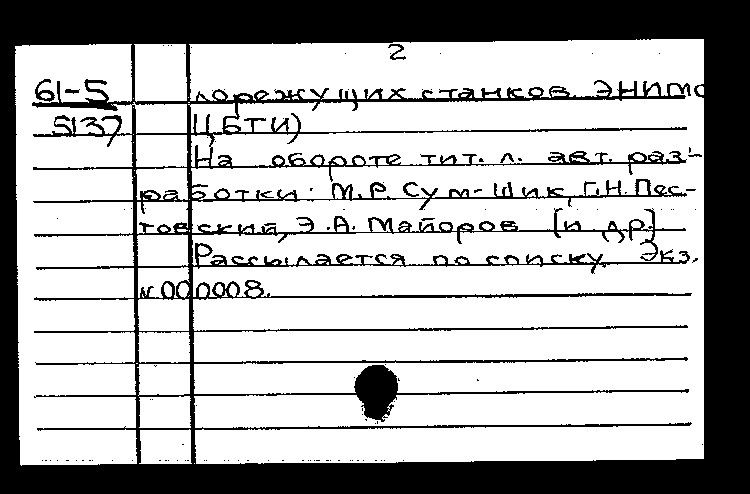 2
61-5 лорежущих станков. ЭНИМС
5137 ЦБТИ)
На обороте тит. л. авт. раз-
работки: М.Р. Сум-Шик, Г.Н. Пес-
товский, Э.А. Майоров [и др.]
Рассылается по списку. Экз.
№ 000008.